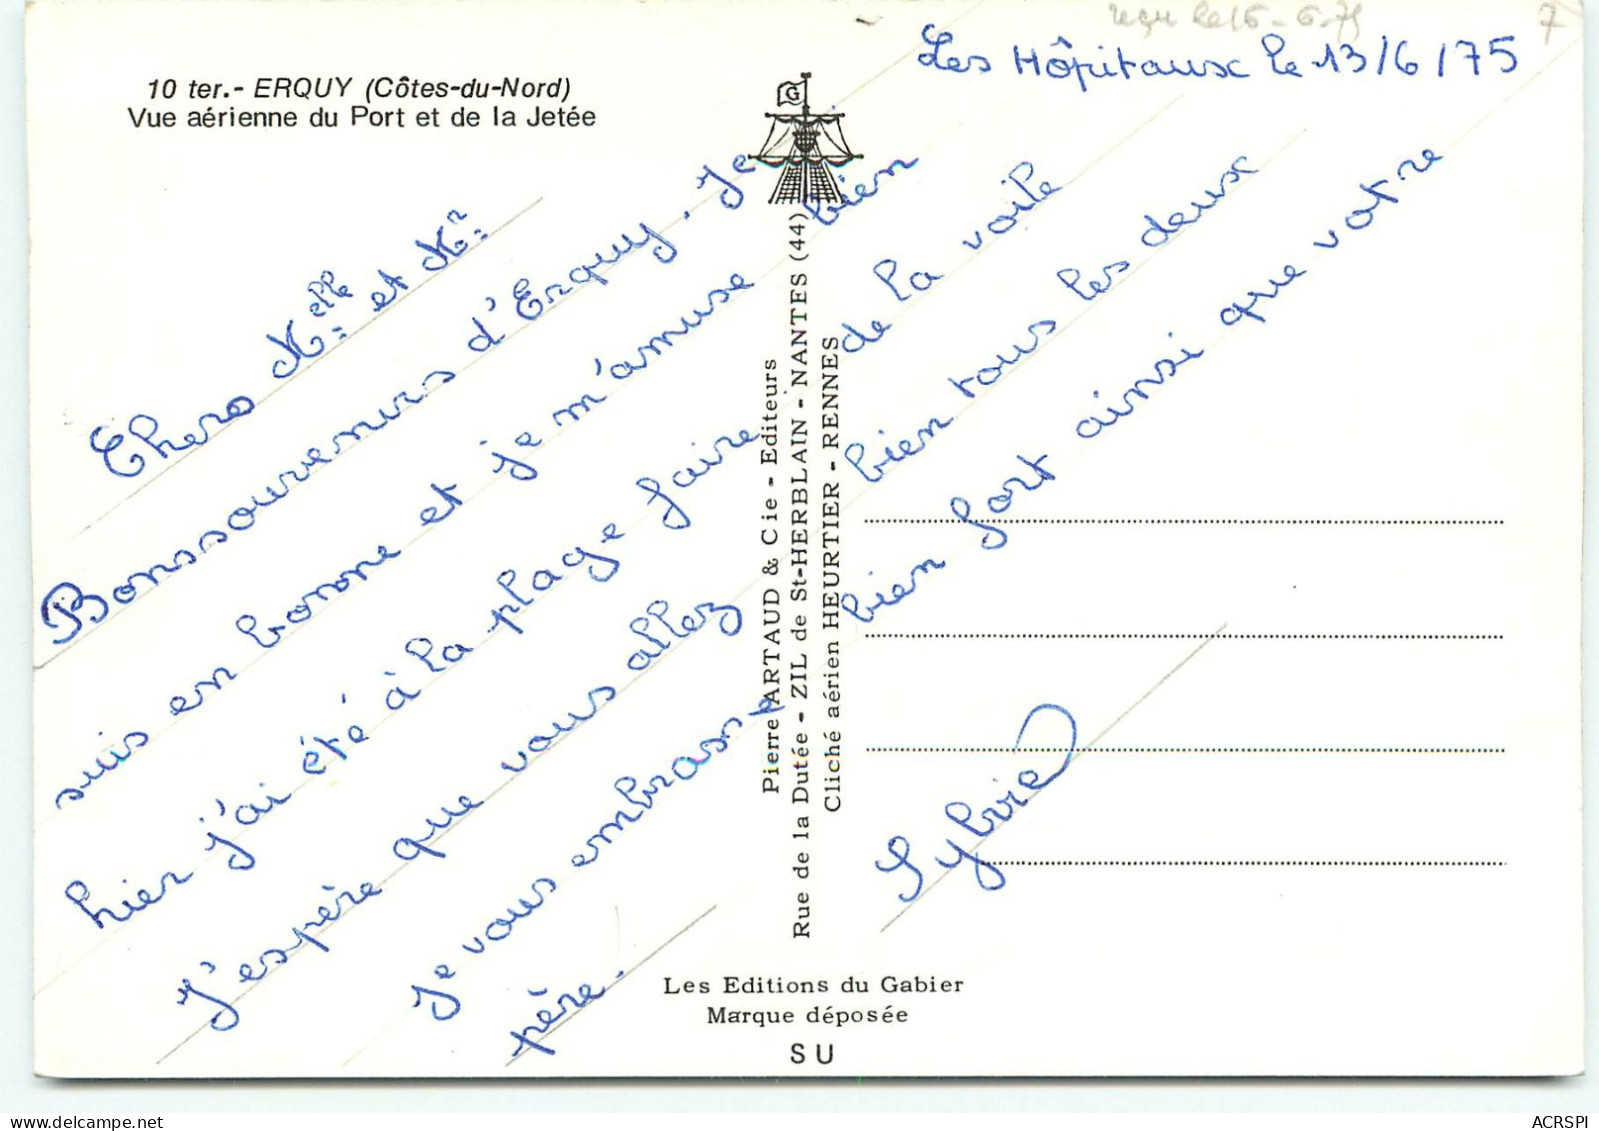 reçu le 16-6-75
7
Les Hôpitaux le 13/6/75
10 ter.- ERQUY (Côtes-du-Nord)
Vue aérienne du Port et de la Jetée
G
Chers Melle et Mr
Bons souvenirs d'Erquy. Je
suis en bonne et je m'amuse bien
hier j'ai été à la plage faire de la voile
J'espère que vous allez bien tous les deux
Je vous embrasse bien fort ainsi que votre
père.
Sylvie
Pierre ARTAUD & Cie - Editeurs
Rue de la Dutée - ZIL de St-HERBLAIN - NANTES (44)
Cliché aérien HEURTIER - RENNES
Les Editions du Gabier
Marque déposée
SU
ACRSPI